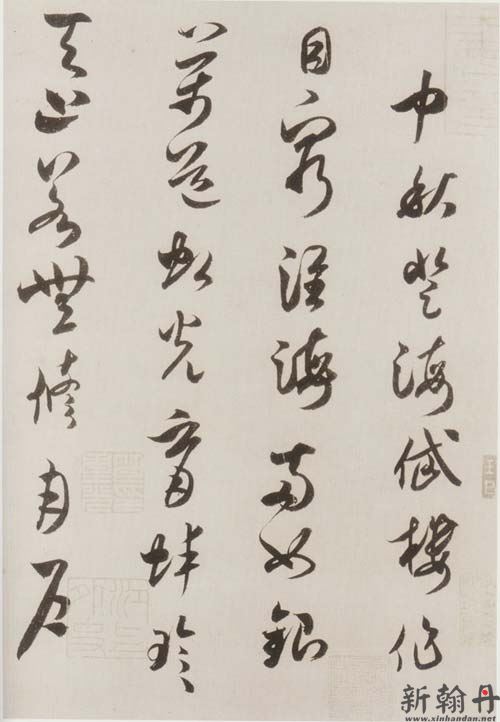 中秋登海岱樓作
目窮淮海兩如銀
萬道虹光育蚌珍
天上若無修月戶
新翰丹
www.xinhandan.net